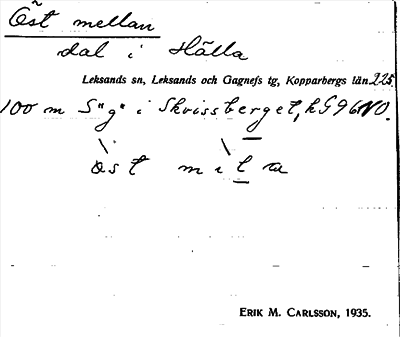 Öst mellan
dal i Hälla
Leksands sn, Leksands och Gagnefs tg, Kopparbergs län. 225.
100 m S "g" i Skvissberget, k G 96 NO.
öst mila
ERIK M. CARLSSON, 1935.